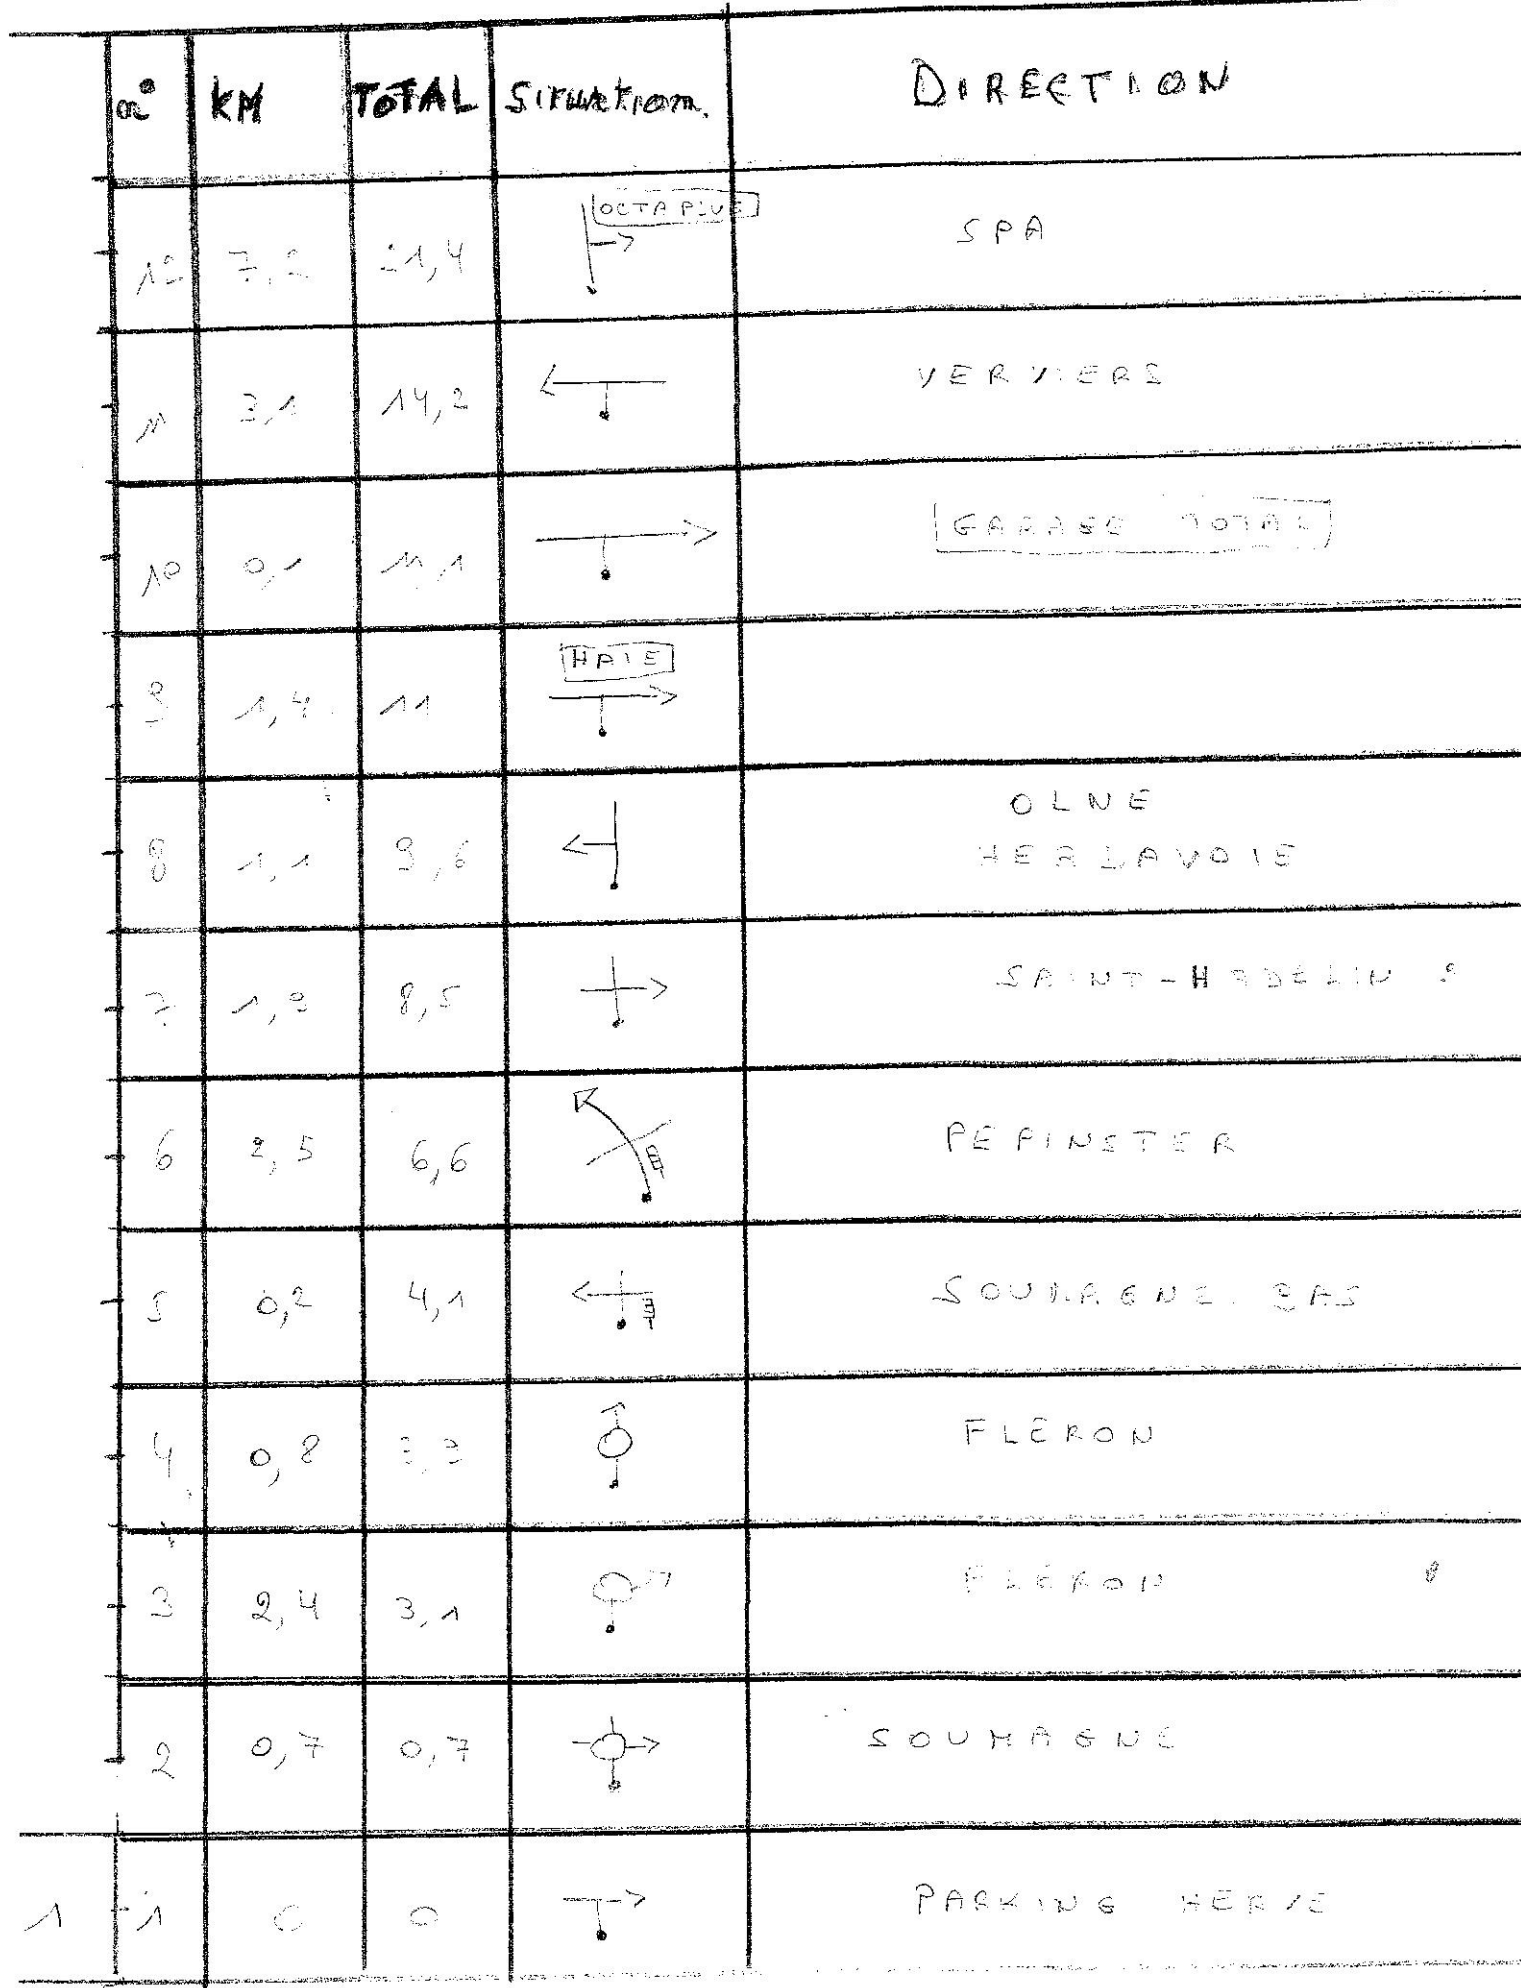 n° KM TOTAL Situation. DIRECTION
12 7,2 21,4 OCTA PLUS SPA
11 3,1 14,2 VERVIERS
10 0,1 11,1 GARAGE TOTAL
9 1,4 11 HAIE
8 1,1 9,6 OLNE
HERLAVOIE
7 1,9 8,5 SAINT-HADELIN
6 2,5 6,6 PEPINSTER
5 0,2 4,1 SOUMAGNE BAS
4 0,8 3,9 FLÉRON
3 2,4 3,1 FLÉRON
2 0,7 0,7 SOUMAGNE
1 1 0 0 PARKING HERVE